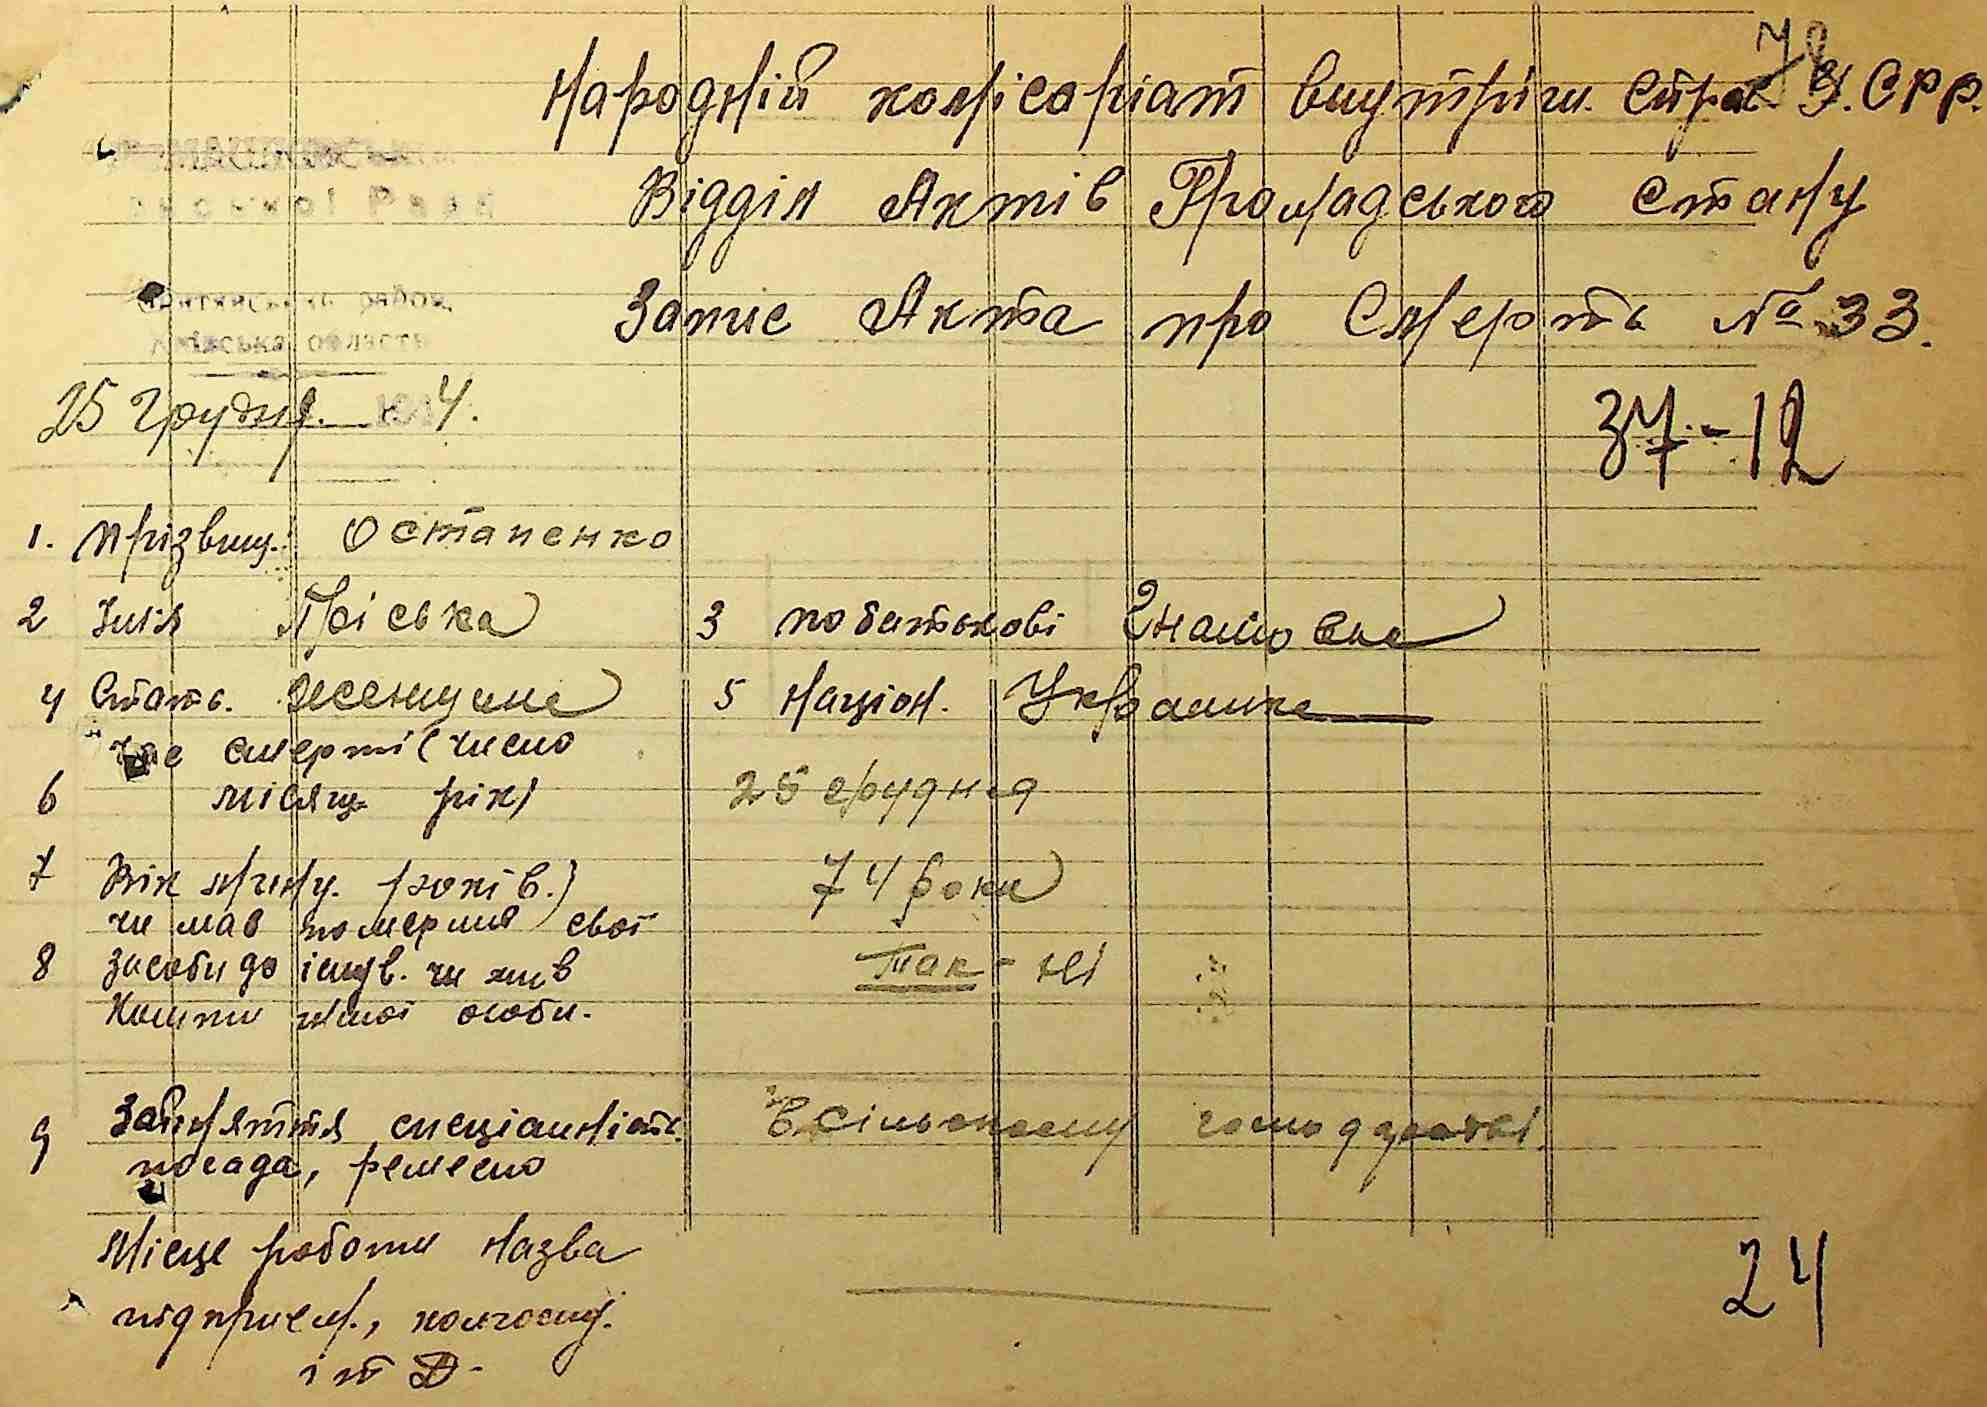 78
Народній комісаріат внутріш. Справ У.СРР.
Відділ Актів Громадського Стану
Запис Акта про Смерть № 33.
Київська область
25 Грудня. 4.
37-12
1. Прізвищ. Остапенко
2 Імія Пріська 3 по батькові Гнатовна
4 Стать. женщина 5 націон. Українка
час смерті (число
6 місяць рік) 25 грудня
7 Вік мину. років.) 74 роки
чи мав померший свої
8 засоби до існув. чи жив Так - Ні
Кошти иншої особи.
9 Займяття, спеціальніст. В сільському господарстві
посада, ремесло
Місце роботи назва
підприєм., колгоспу.
і т Д-
24